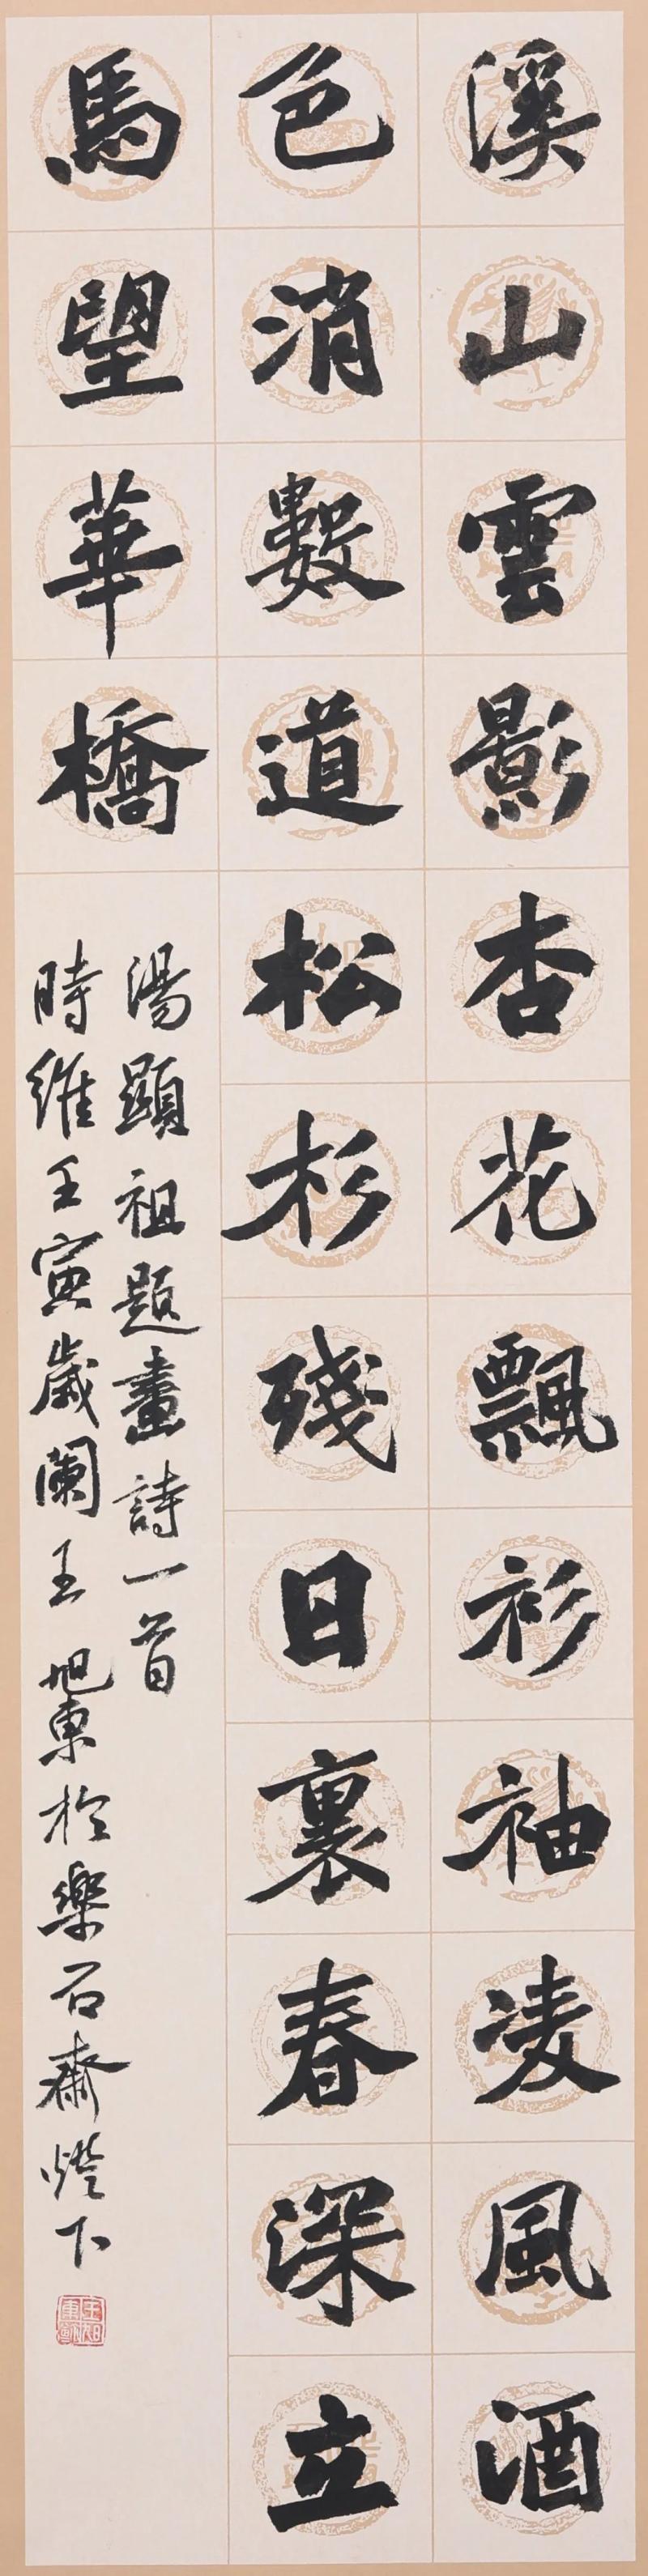 溪山雲影杏花飄衫袖凌風酒
色消數道松杉殘日裏春深立
馬望華橋
湯顯祖題畫詩一首
時維壬寅歲闌王旭東於樂石齋燈下